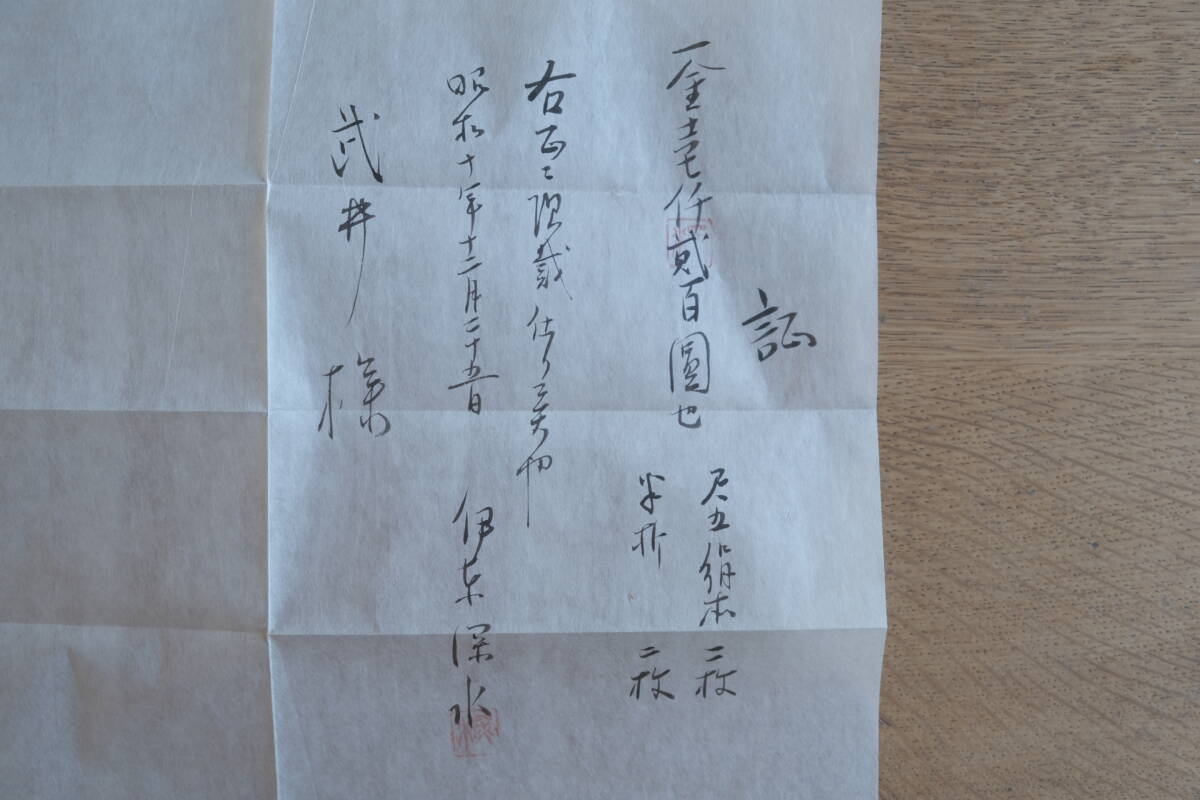 証
一金壱仟貳百圓也
尺五絹本 二枚
半折 二枚
右正ニ領戴仕リ候也
昭和十年十二月二十五日
伊東深水
武井様